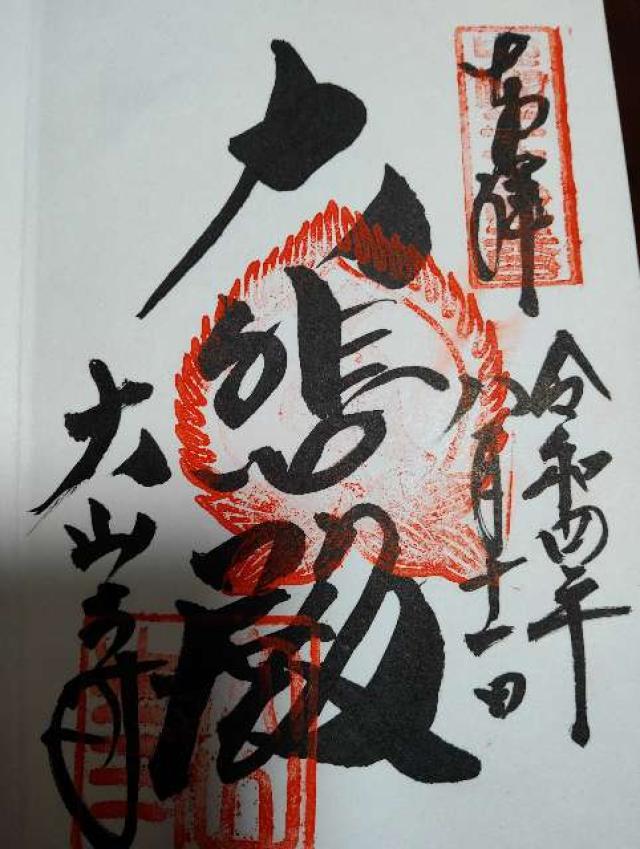 奉拝
令和四年
八月十一日
大悲殿
大山寺